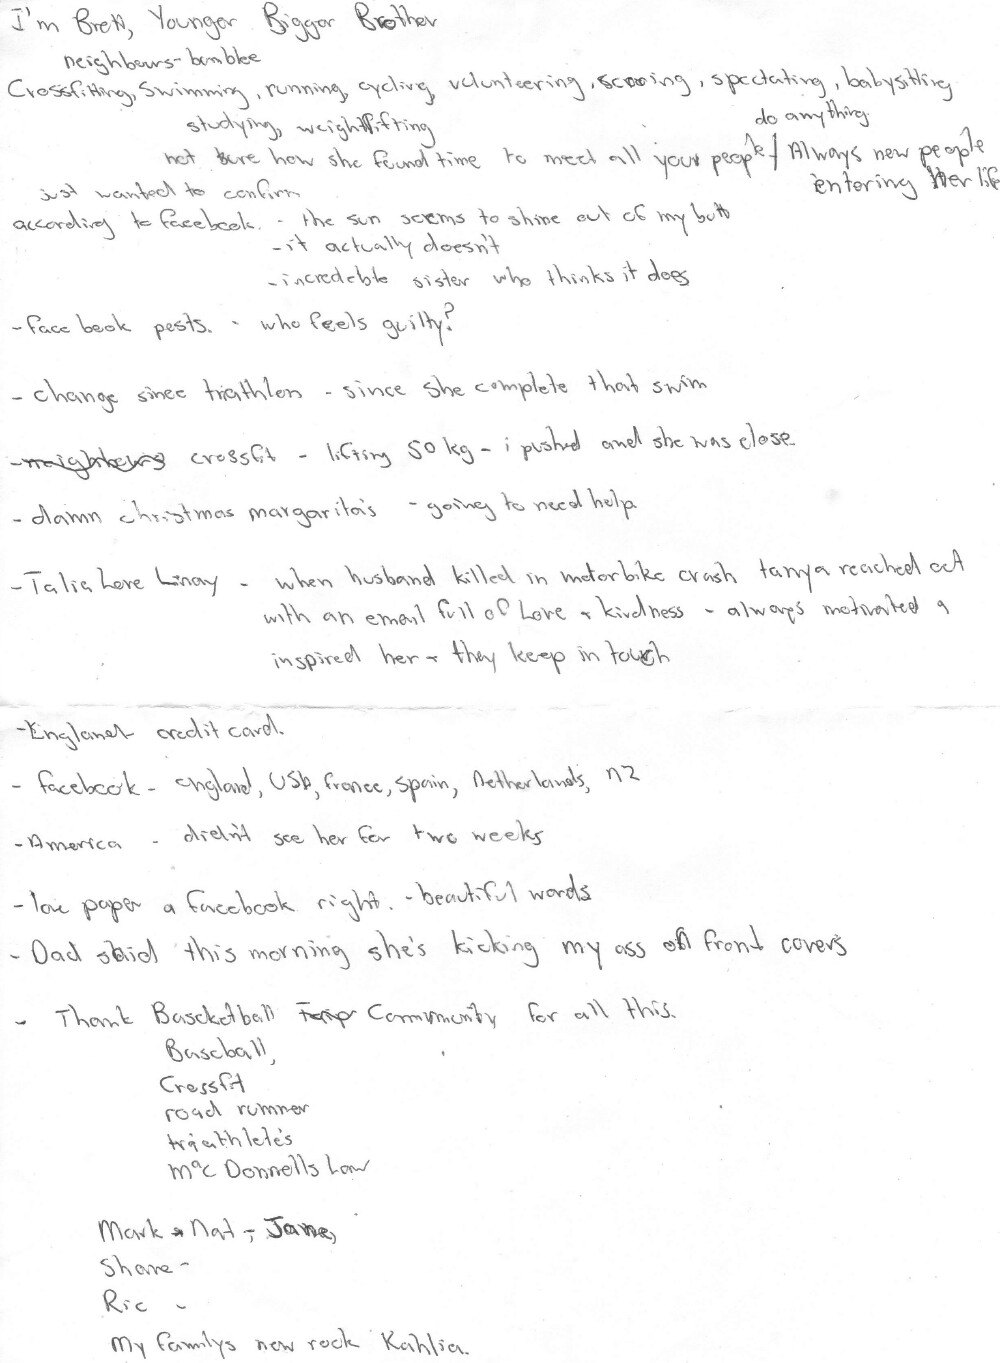 I'm Brett, Younger Bigger Brother
neighbours - bumblee
Crossfitting, Swimming, running, cycling, volunteering, scooing, spectating, babysitting
do anything
studying, weightlifting
not sure how she found time to meet all your people / Always new people
entering Her life
just wanted to confirm
according to facebook. - the sun seems to shine out of my butt
- it actually doesn't
- incredeble sister who thinks it does
- face book pests. - who feels guilty?
- change since triathlon - since she complete that swim
- neighbours crossfit - lifting 50 kg - i pushed and she was close
- damn christmas margarita's - going to need help.
- Talia Love Linay - when husband killed in motorbike crash tanya reached out
with an email full of Love + kindness - always motivated &
inspired her + they keep in touch
- England credit card.
- facebook - england, USA, france, spain, Netherlands, NZ
- America - didn't see her for two weeks
- love paper a facebook right. - beautiful words
- Dad said this morning she's kicking my ass on front covers
- Thank Bascketball Community for all this.
Baseball,
Crossfit
road runner
triathlete's
MacDonnells Law
Mark + Nat -, Jane,
Shane -
Ric -
My familys new rock Kahlia.